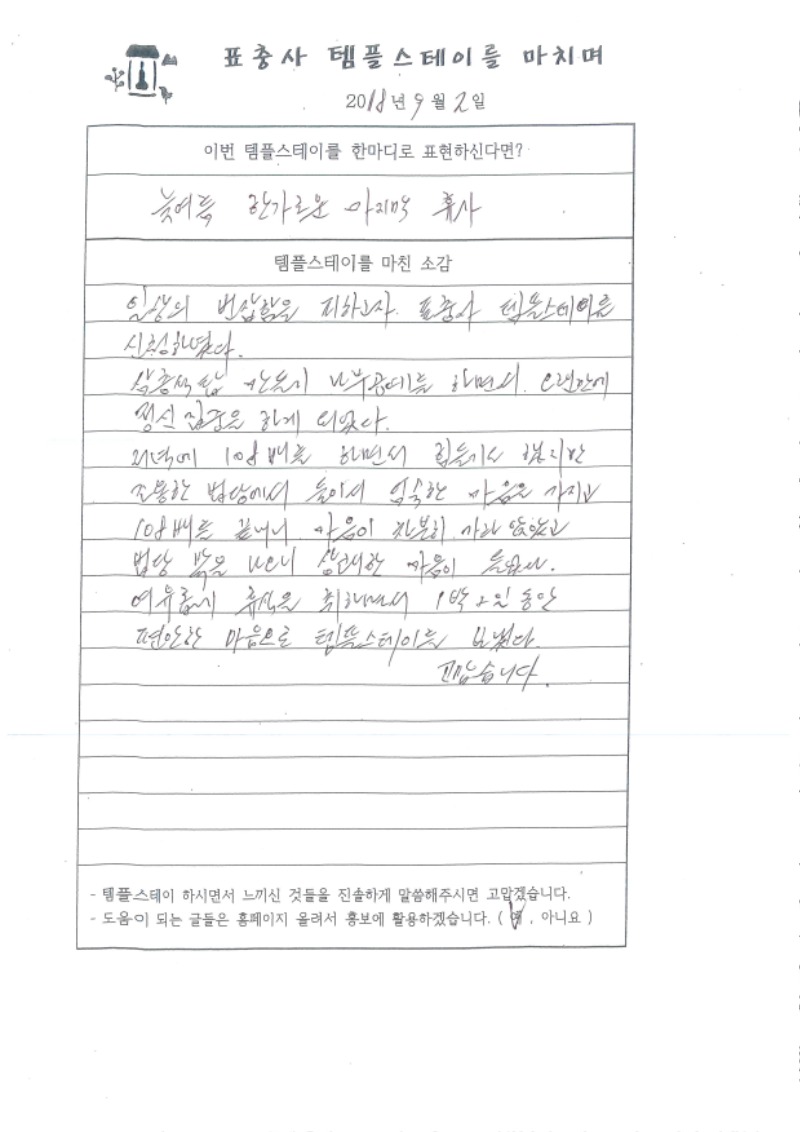 표충사 템플스테이를 마치며
2018년 9월 2일
이번 템플스테이를 한마디로 표현하신다면?
늦여름 한가로운 마지막 휴가
템플스테이를 마친 소감
일상의 번잡함을 피하고자 표충사 템플스테이를
신청하였다.
삼층석탑 만들기 나무공예를 하면서 오랜만에
정신 집중을 하게 되었다.
저녁에 108배를 하면서 힘들기도 했지만
조용한 법당에서 들어서 엄숙한 마음을 가지고
108배를 끝내니 마음이 차분히 가라 앉았고
법당 밖을 나오니 상쾌한 마음이 들었다.
여유롭게 휴식을 취하면서 1박 2일 동안
편안한 마음으로 템플스테이를 보냈다.
고맙습니다.
- 템플스테이 하시면서 느끼신 것들을 진솔하게 말씀해주시면 고맙겠습니다.
- 도움이 되는 글들은 홈페이지 올려서 홍보에 활용하겠습니다. ( 예 , 아니요 )